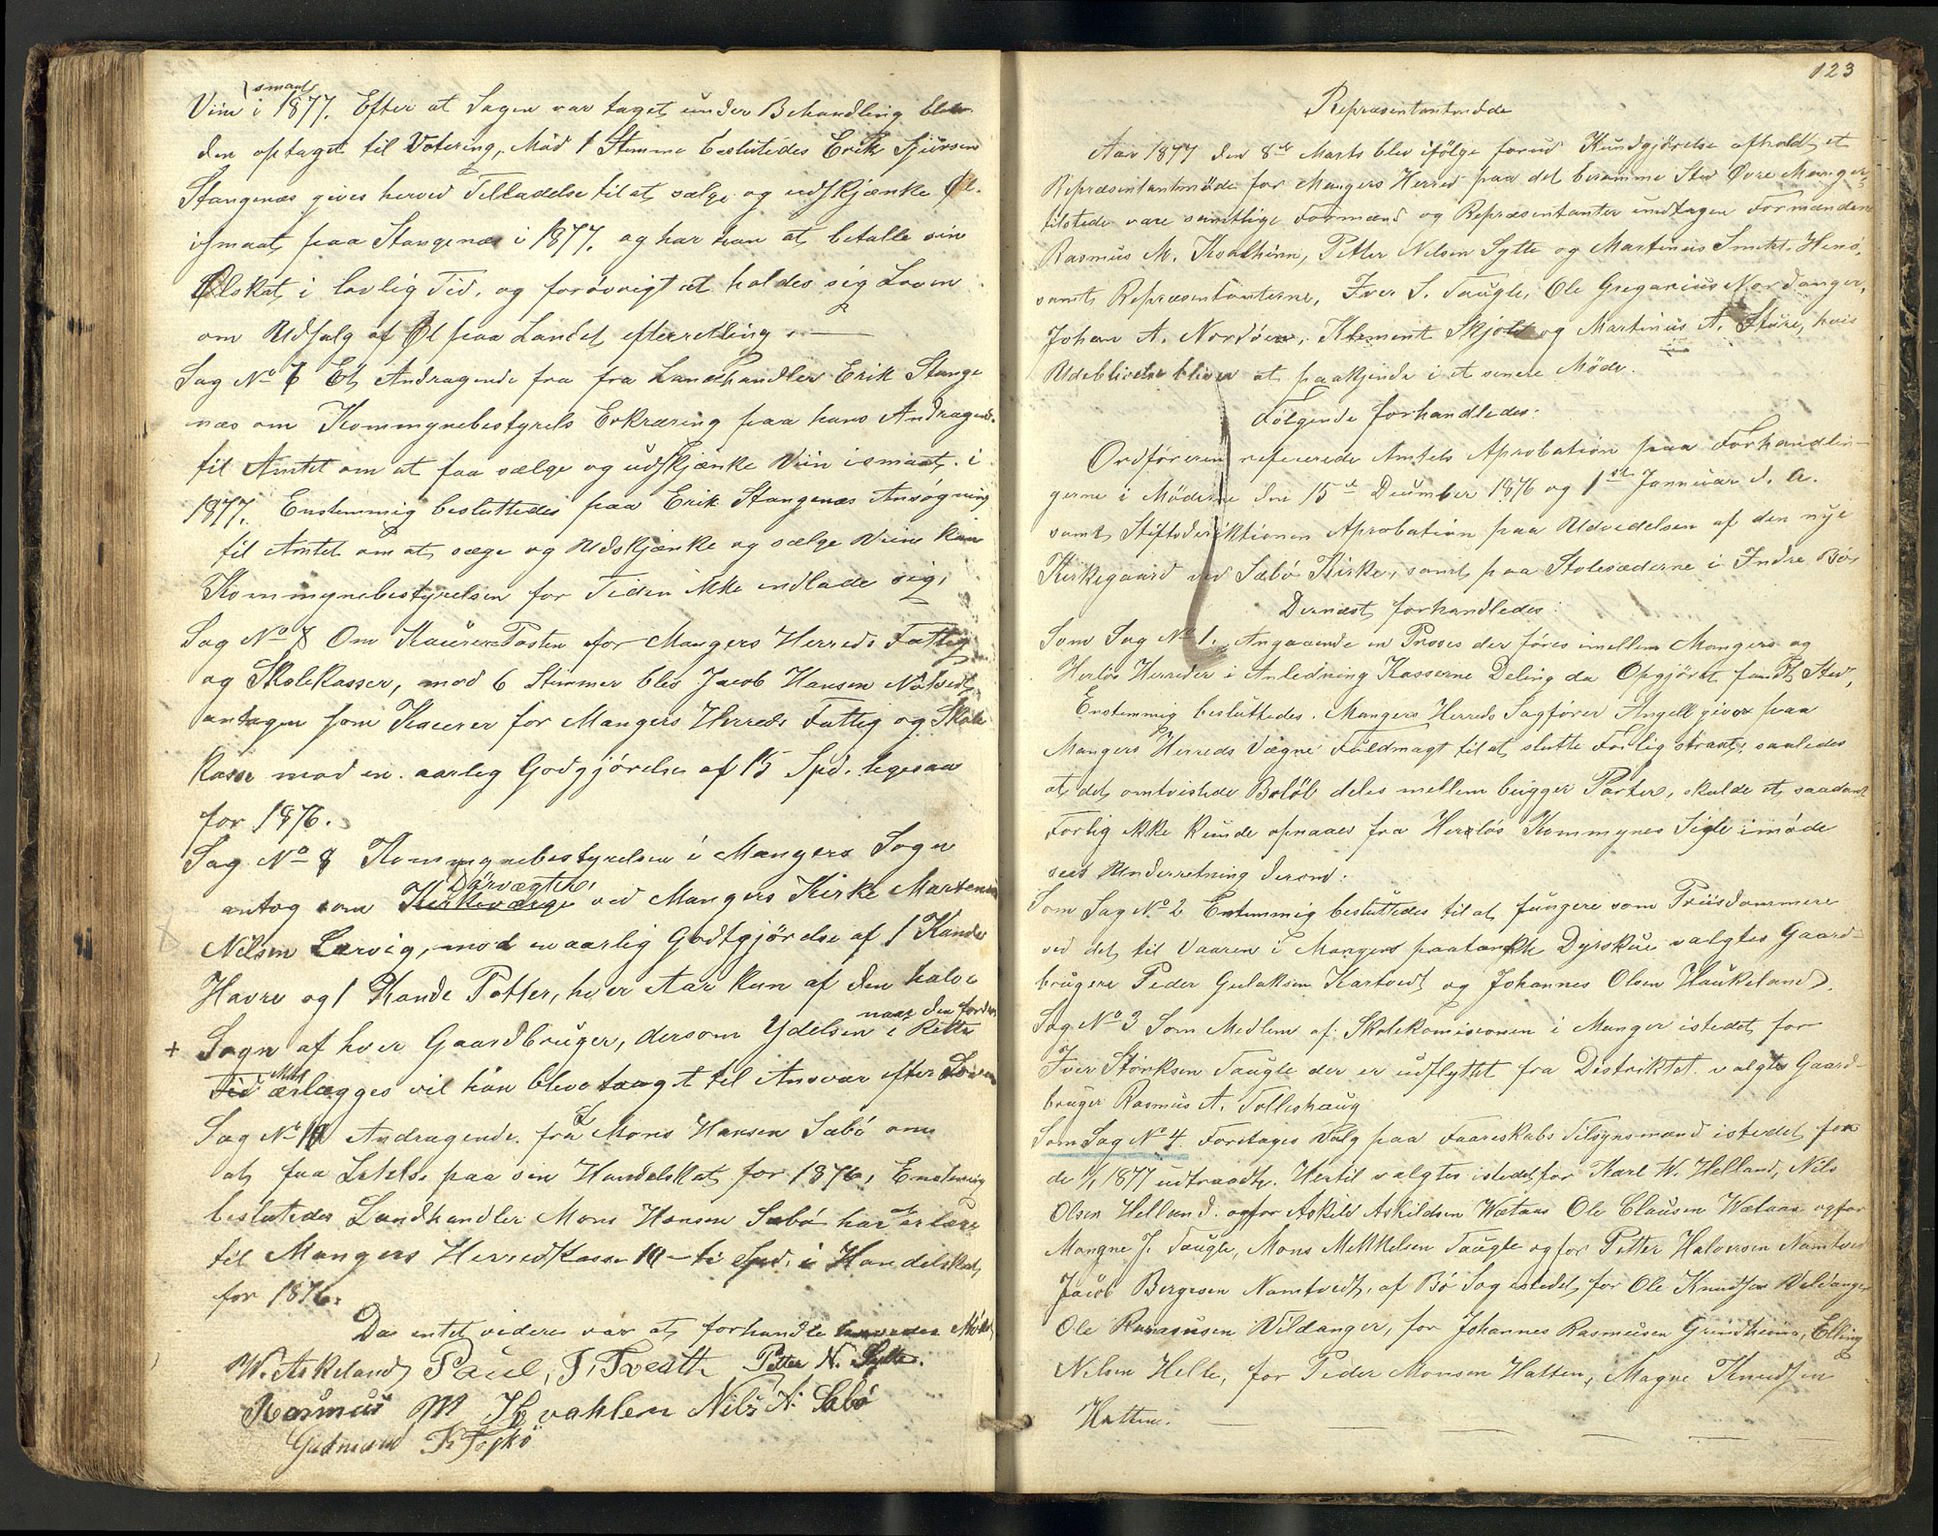 smaat
Viin i 1877. Efter at Sagen var taget under Behandling blev
den optaget til Votering, Mod 1 Stemme beslutedes Erik Sjursen
Stangenæs gives herved Tilladelse til at sælge og udskjænke Øl
ismaat paa Stangenæs i 1877, og har han at betalle sin
Ølskat i lovlig Tid, og forøvrigt at holdes sig Loven
om Udsalg af Øl paa Landet efterretling. —
Sag No 6 Et Andragende fra fra Landhandler Erik Stange
næs om Kommynebestyrels Erkræring paa hans Andragend.
til Amtet om at faa sælge og udskjænke Viin ismaat i
1877. Enstemmig besluttedes paa Erik Stangenæs Ansøgning
til Amtet om at sæge og Udskjænke og sælge Viin kan
Kommynebestyrelsen for Tiden ikke indlade sig,
Sag No 7 Om Kasserer Posten for Mangers Herreds Fattig
og Skolekasser, med 6 Stimmer blev Jacob Hansen
antagen som Kaserer for Mangers Herreds Fattig og Skole
kasse mod en aarlig Godgjørelse af 15 Spd. ligesaa
for 1876.
Sag No 8 Kommynebestyrelsen i Mangers Sogn
Dørvægter
antog som Kirkeværge ved Mangers Kirke Martenus
Nilsen Lervig, mod en aarlig Godtgjørelse af 1 Kande
Havre og 1 Kande Potter, hver Aar kun af den halve
naar den fordres
+ Sogn af hver Gaardbruger, dersom Ydelsen i Rette
ikke
Tid erlægges vil han blive taagt til Ansvar efter Loven
Sag No 10 Andragende fra Mons Hansen Sæbø om
at faa Letelse paa sin Handelskat for 1876, Enstemig
beslutedes Landhandler Mons Hansen Sæbø har Erlæge
til Mangers Herredkasse 10 – ti Spd. i Handelskat
for 1876.
Da intet videre var at forhandle hævedes Mødet
W. Askeland Paul, J. Tvedth Petter N. Sylte.
Rasmus M Kvahlem Nils N. Sæbø
Gudmund K Toskö
123
Repræsentantmøde
Aar 1877 den 8de Marts blev ifølge forud Kundgjørelse afholdt et
Repræsentantmøde for Mangers Herred paa det beramme Sted Øvre Manger,
tilstede vare samtlige Formænd og Repræsentanter undtagen Formændene
Rasmus M. Kvalheim, Petter Nilsen Sylte og Martinus Henø,
samt Repræsentanterne, Iver S. Taugle, Ole Gregarius Nordanger,
Johan A. Nordøen, Klement Skjold og Martinus A. Sture, hvis
Udeblivelse bliver at paakjende i et senere Møde.
Følgende forhandledes:
Ordføreren refererede Amtets Aprobation paa Forhandlin-
gerne i Møderne den 15de Deumber 1876 og 1ste Jannuar d. A.
samt Stiftsdirektionen Aprobation paa Udvidelsen af den nye
Kirkegaard ved Sæbø Kirke, samt paa Stolesæderne i Indre Bø
Dernæst forhandledes:
Som Sag No 1. Angaaende en Proses der føres imellem Mangers og
Herløs Herreder i Anledning Kasserne Deling da Opgjøret fandt Sted,
Enstemmig besluttedes. Mangers Herreds Sagfører Angell giver paa
Mangers Herreds Vægne Fuldmagt til at slutte Forlig strax, saaledes
at det omtvistede Beløb deles mellem begger Parter, skulde et saadant
Forlig ikke kunde opnaaes fra Herløs Kommynes Side imøde
sees Underretning derom.
Som Sag No 2 Enstemmig besluttedes til at fungere som Priisdommere
ved det til Vaaren i Mangers paatænkte Dyrskue valgtes Gaard-
brugere Peder Gulaksen Kartvedt og Johannes Olsen Haukeland.
Sag No 3 Som Medlem af Skolekomisionen i Manger istedet for
Iver Størksen Taugle der er udflyttet fra Distriktet valgtes Gaard-
bruger Rasmus A. Tolleshaug
Som Sag No 4. Foretages Valg paa Faareskabs Tilsynsmænd istedet for
de 1/1 1877 udtraadte. Hertil valgtes istedetfor Karl W. Helland, Nils
Olsen Helland. og for Askild Askildsen Wetaas Ole Clausen Wetaas og for
Mangne J. Taugle, Mons Mikkelsen Taugle og for Petter Halversen Namtvedt
Jacob Bergesen Namtvedt, af Bø Sog istedet for Ole Knudsen Vildanger
Ole Rasmusen Vildanger, for Johannes Rasmusen Grindheim, Elling
Nilsen Helle, for Peder Monsen Hatten, Magne Knudsen
Hatten.